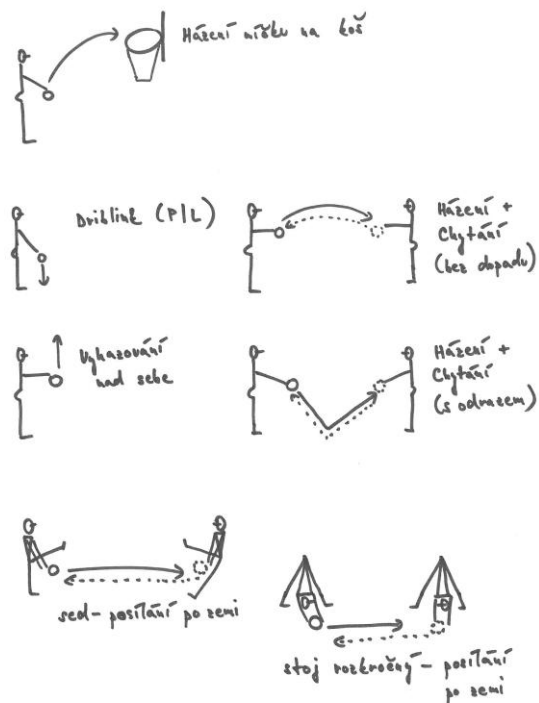 Házení míčku na koš
Driblink (P/L)
Házení +
Chytání
(bez dopadu)
Vyhazování
nad sebe
Házení +
Chytání
(s odrazem)
sed - posílání po zemi
stoj rozkročný - posílání
po zemi